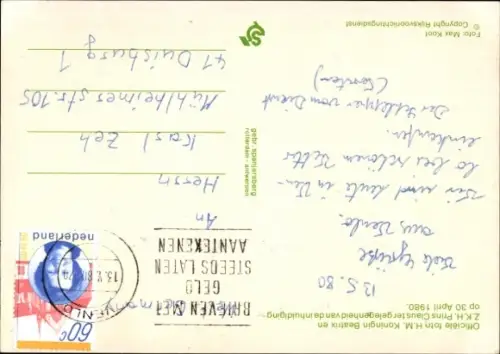 Officiële foto H.M. Koningin Beatrix en
Z.K.H. Prins Claus ter gelegenheid van de inhuldiging
op 30 April 1980.
13.5.80
Viele Grüße
aus Venlo.
Wir sind heute in Ven-
lo bei schönem Wetter
einkaufen.
Der Schlepper vom Dienst
(Torsten)
Foto: Max Koot
© Copyright Rijksvoorlichtingsdienst
gebr. spanjersberg
rotterdam - antwerpen
BRIEVEN MET
GELD
STEEDS LATEN
AANTEKENEN
VENLO
13.V.80
60c
nederland
Germany
An
Herrn
Karl Zeh
Mühlheimer Str. 105
41 Duisburg 1